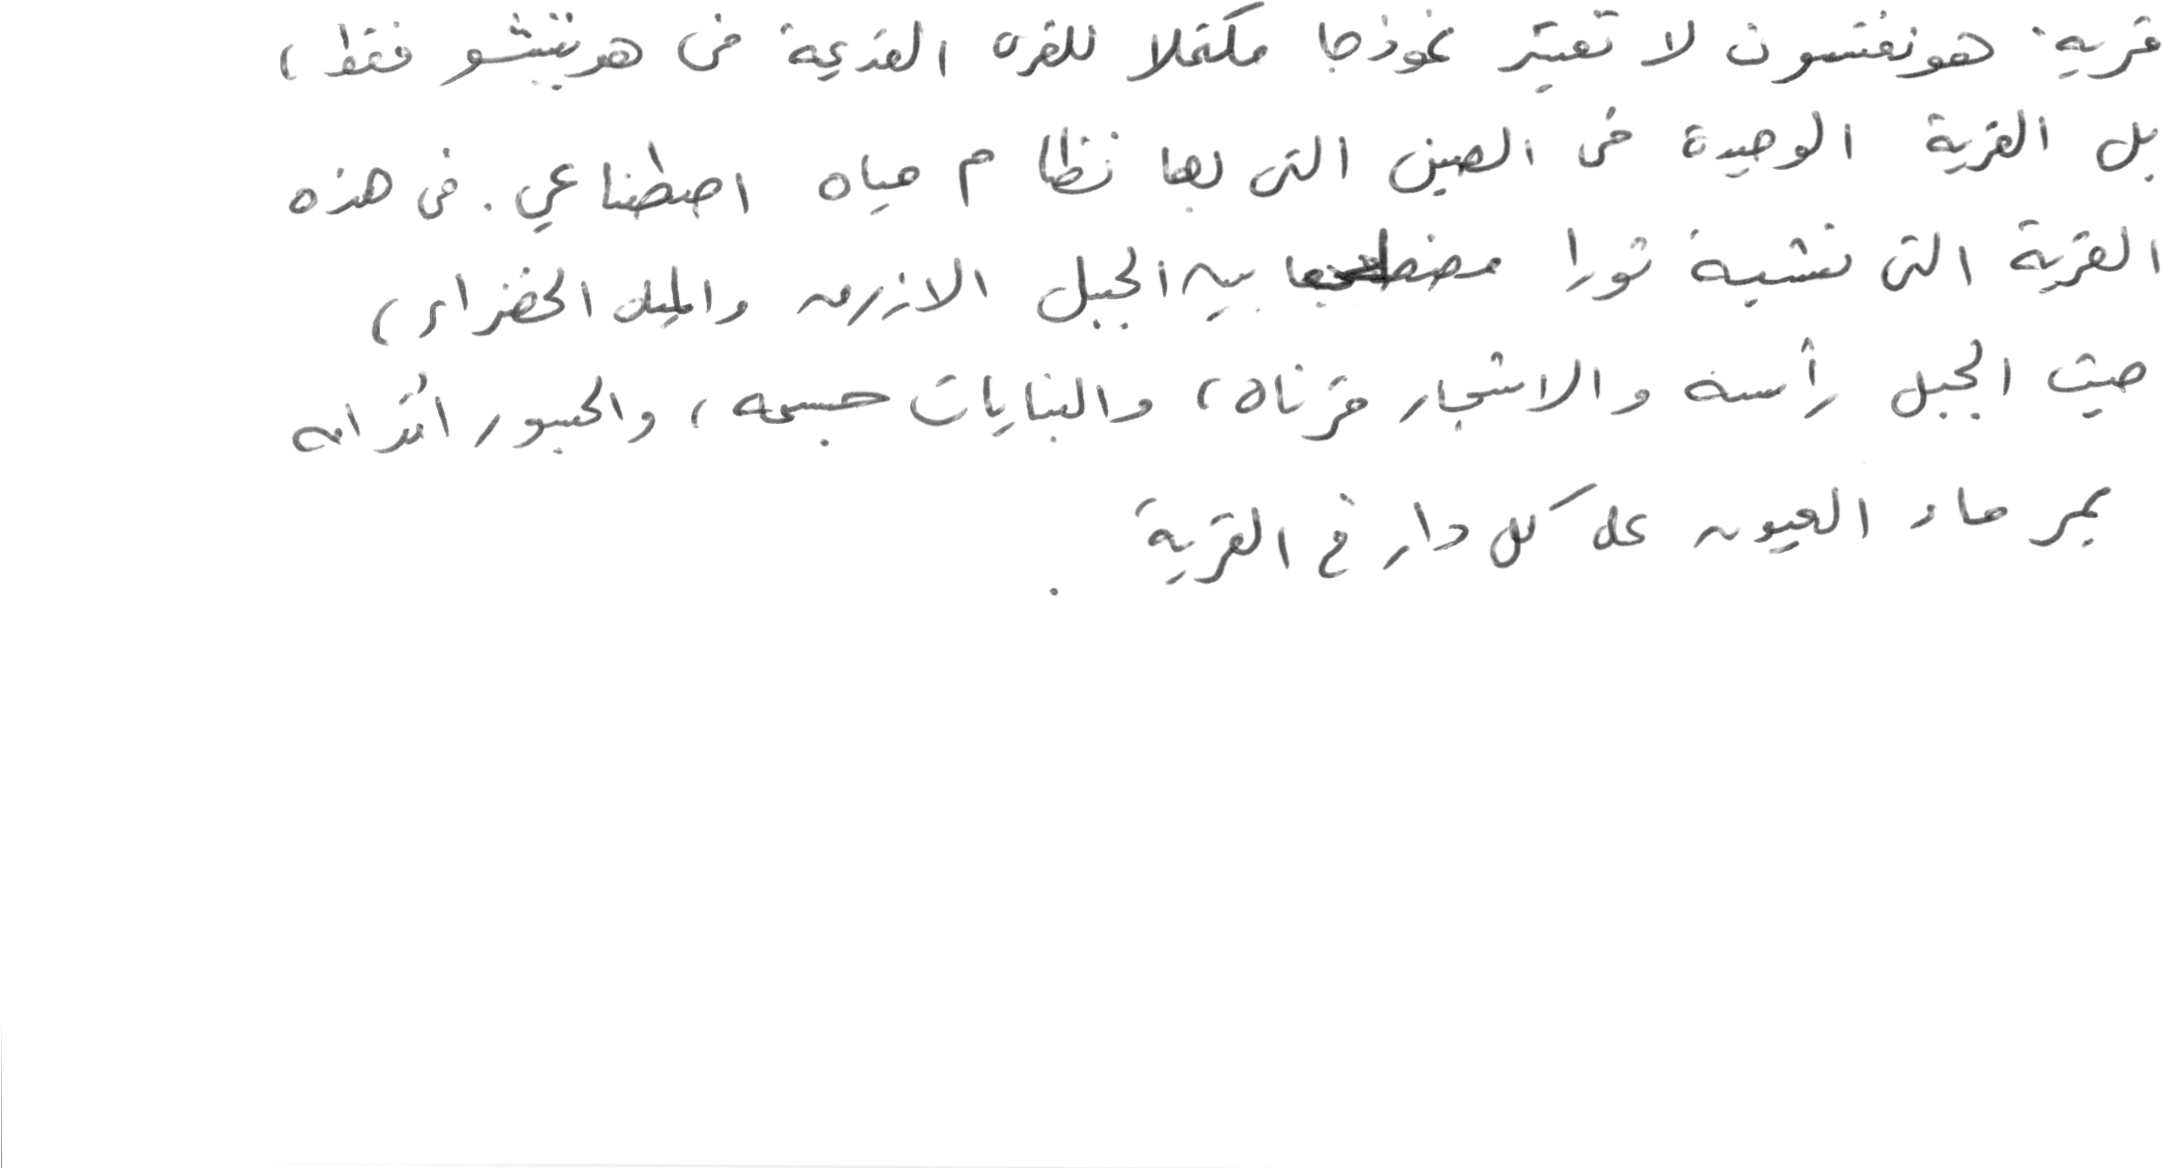 قرية هونغتسون لا تعتبر نموذجا مكتملا للقرى القديمة فى هويتشو فقط ،
بل القرية الوحيدة فى الصين التى بها نظام مياه اصطناعي . فى هذه
القرية التى تشبة ثورا مضطجعا بين الجبل الازرق والمياه الخضراء ،
حيث الجبل رأسة والاشجار قرناه ، والبنايات جسمه ، والجسور أقدامه
يمر ماء العيون على كل دار في القرية .